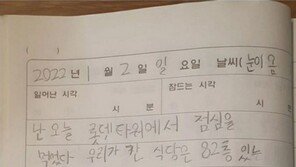 ( )
2022년 1월 2일 일요일 날씨( 눈이 옴
일어난 시각 잠드는 시각
시 분 시 분
난 오늘 롯데타워에서 점심을
먹었다 우리가 간 식당은 82층 있는